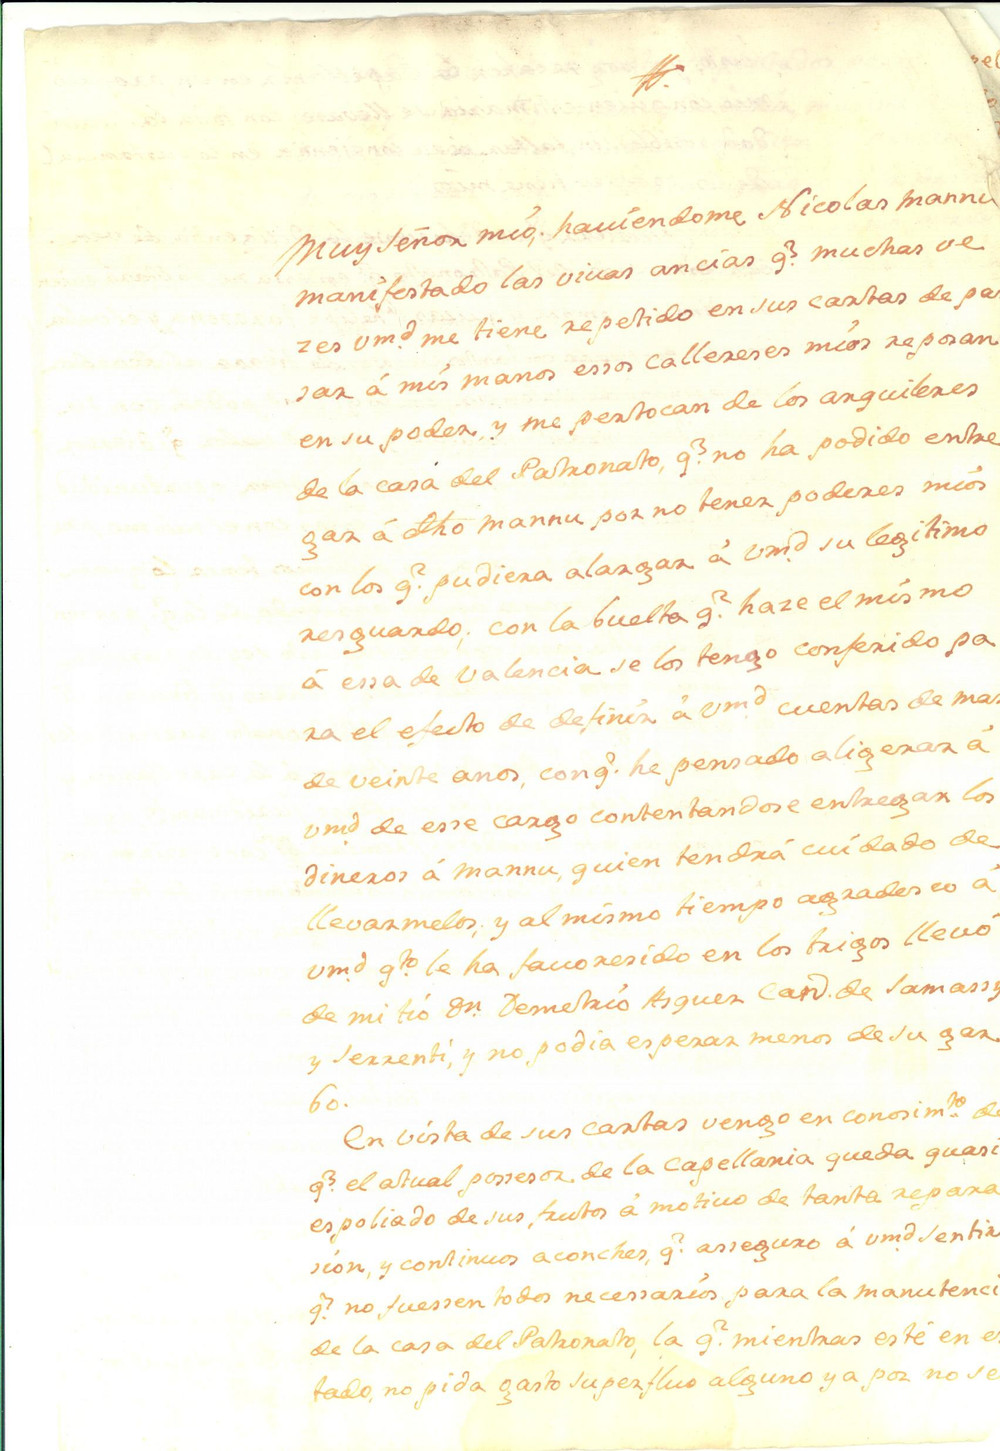 Muy Señor mío; haviendome Nicolas Mannu
manifestado las vivas ancias q.e muchas ve
zes vm.d me tiene repetido en sus cartas de pa
sar á mís manos essos callereses míos reposan
en su poder, y me pertocan de los arquileres
de la casa del Patronato, q.e no ha podido entre
gar á dho Mannu por no tener poderes míos
con los q.e pudiera alargar á vm.d su legitimo
resguardo; con la buelta q.e haze el mísmo
á essa de Valencia se los tengo conferido pa
ra el efecto de definír á vm.d cuentas de mas
de veinte anos, con q.e he pensado aligerar á
vm.d de esse cargo contentandose entregar los
dineros á Mannu, quien tendrá cuídado de
llevarmelos; y al mísmo tiempo agradesco á
vm.d q.to le ha favoresido en los trigos llevó
de mi tío D.n Demetrío Asquer Can.o de Samassy
y Serrentí, y no podia esperar menos de su gar
bo.
En vísta de sus cartas vengo en conosim.to de
q.e el atual possesor de la Capellania queda quasi
espoliado de sus frutos á motivo de tanta repara
síón, y continuos aconches, q.e asseguro á vm.d sentir
q.e no fuessen todos necessaríos para la manutenci
de la casa del Patronato, la q.e mientras esté en es
tado, no pida gasto superfluo alguno ya por no se